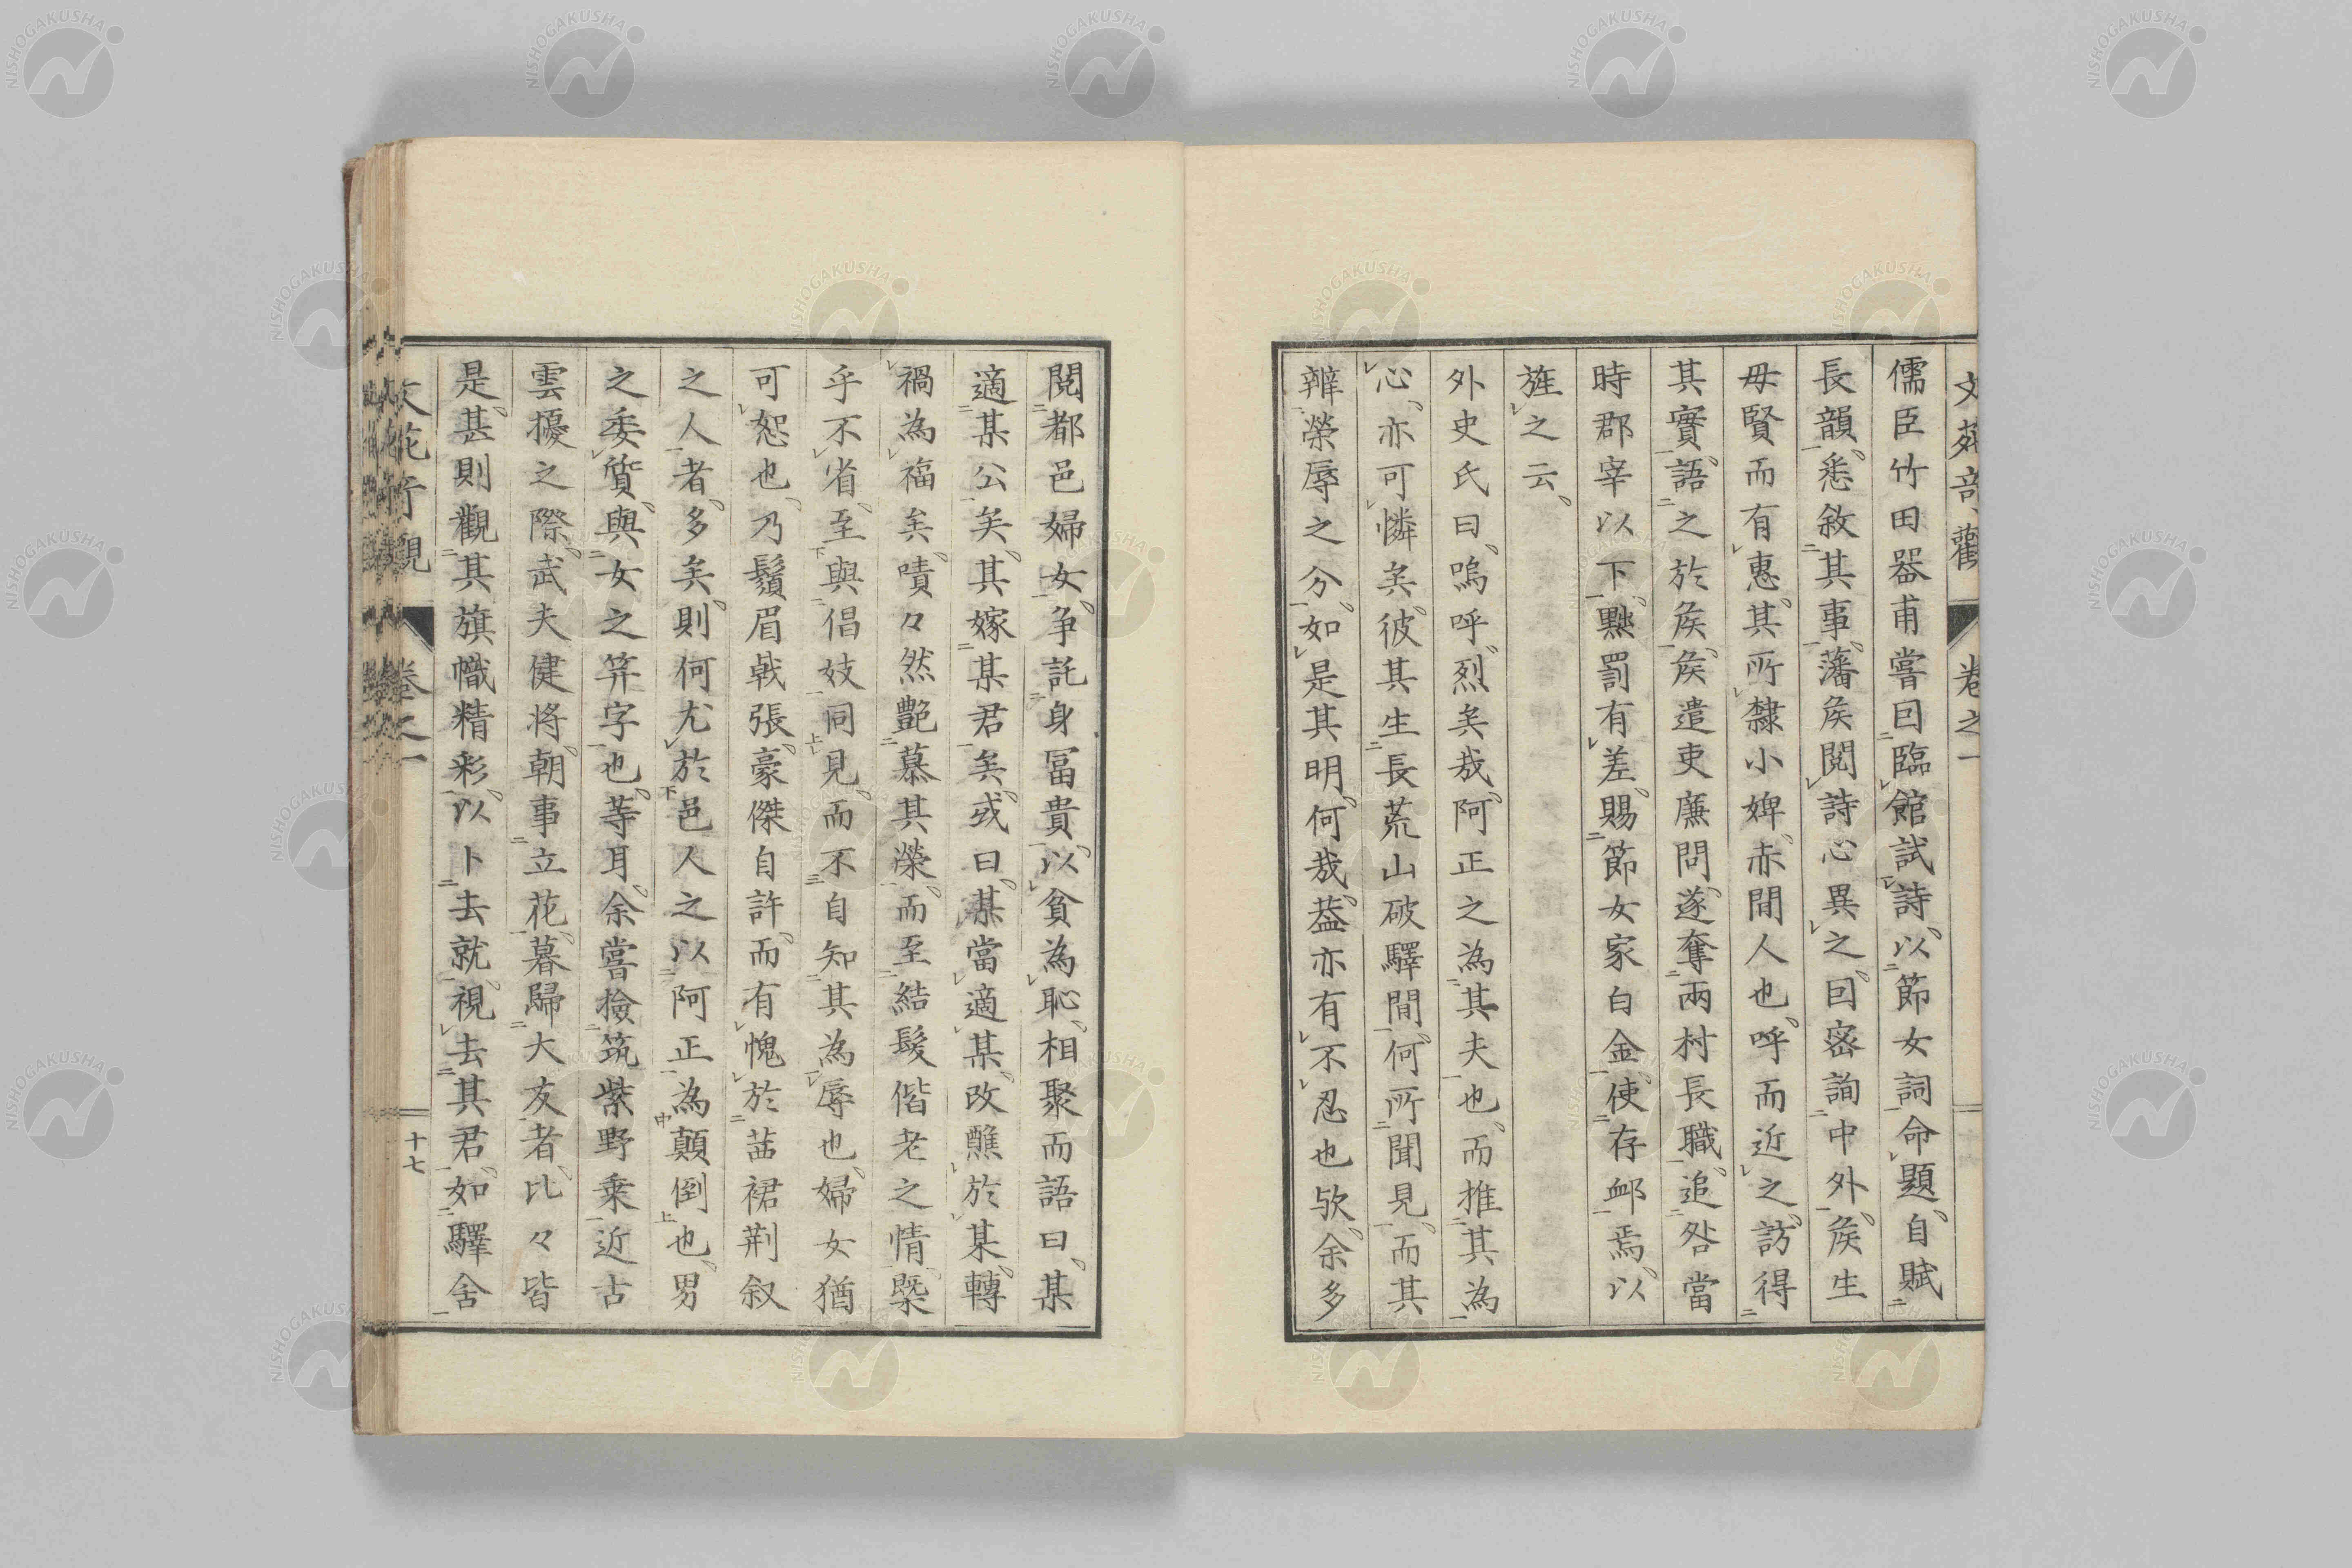 儒臣竹田器甫嘗因臨館試詩以節女詞命題自賦
長韻悉敘其事藩矦閱詩心異之因密詢中外矦生
毋賢而有惠其所隸小婢赤間人也呼而近之訪得
其實語之於矦矦遣吏廉問遂奪兩村長職追咎當
時郡宰以下黜罰有差賜節女家白金使存卹焉以
旌之云
外史氏曰嗚呼烈矣哉阿正之為其夫也而推其為
心亦可憐矣彼其生長荒山破驛間何所聞見而其
辨榮辱之分如是其明何哉葢亦有不忍也歟余多
閱都邑婦女争託身冨貴以貧為恥相聚而語曰某
適某公矣其嫁某君矣或曰某當適某改醮於某轉
禍為福矣嘖々然艷慕其榮而至結髮偕老之情槩
乎不省至與倡妓同見而不自知其為辱也婦女猶
可恕也乃鬚眉戟張豪傑自許而有愧於茁裙荆釵
之人者多矣則何尤於邑人之以阿正為顛倒也男
之委質與女之笄字也等耳余嘗撿筑紫野乗近古
雲擾之際武夫健将朝事立花暮歸大友者比々皆
是甚則觀其旗幟精彩以卜去就視去其君如驛舍
卷之一
十七
NISHOGAKUSHA